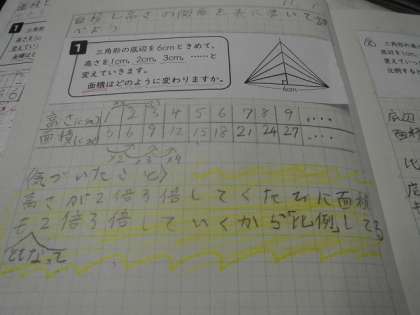 面積と高さの関係を表に書いて
1 三角形の底辺を6cmときめて、
高さを1cm、2cm、3cm、……と
変えていきます。
面積はどのように変わりますか。
6cm
高さ(cm) 1 2 3 4 5 6 7 8 9 ....
面積 3 6 9 12 15 18 21 24 27 ....
×2 ×3 ×4
(気づいたこと)
高さが2倍3倍してくたびに面積
も2倍3倍していくから「比例」してる
ともなって